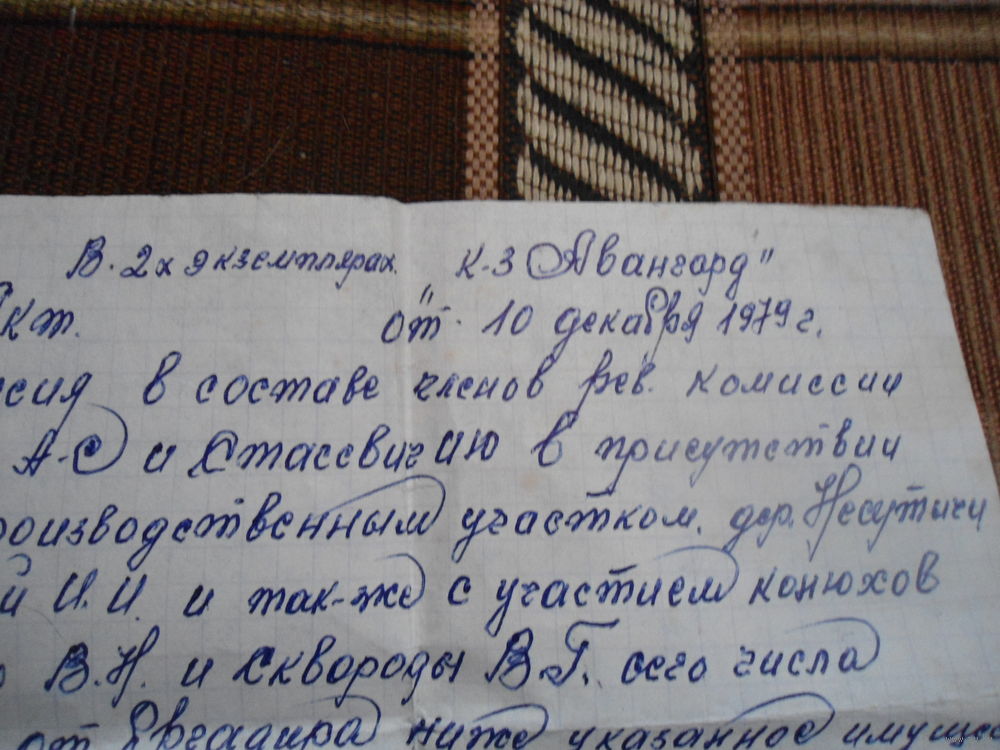 В. 2х экземплярах. к-з "Авангард"
кт. от 10 декабря 1979 г.
ссия в составе членов рев. комиссии
А-С и Стасевич И Ю в присутствии
роизводственным участком. дер. Несутычи
й И.И. и так-же с участием конюхов
о В.Н. и Сквороды В.Г. сего числа
от бригадира ниже указанное имуще